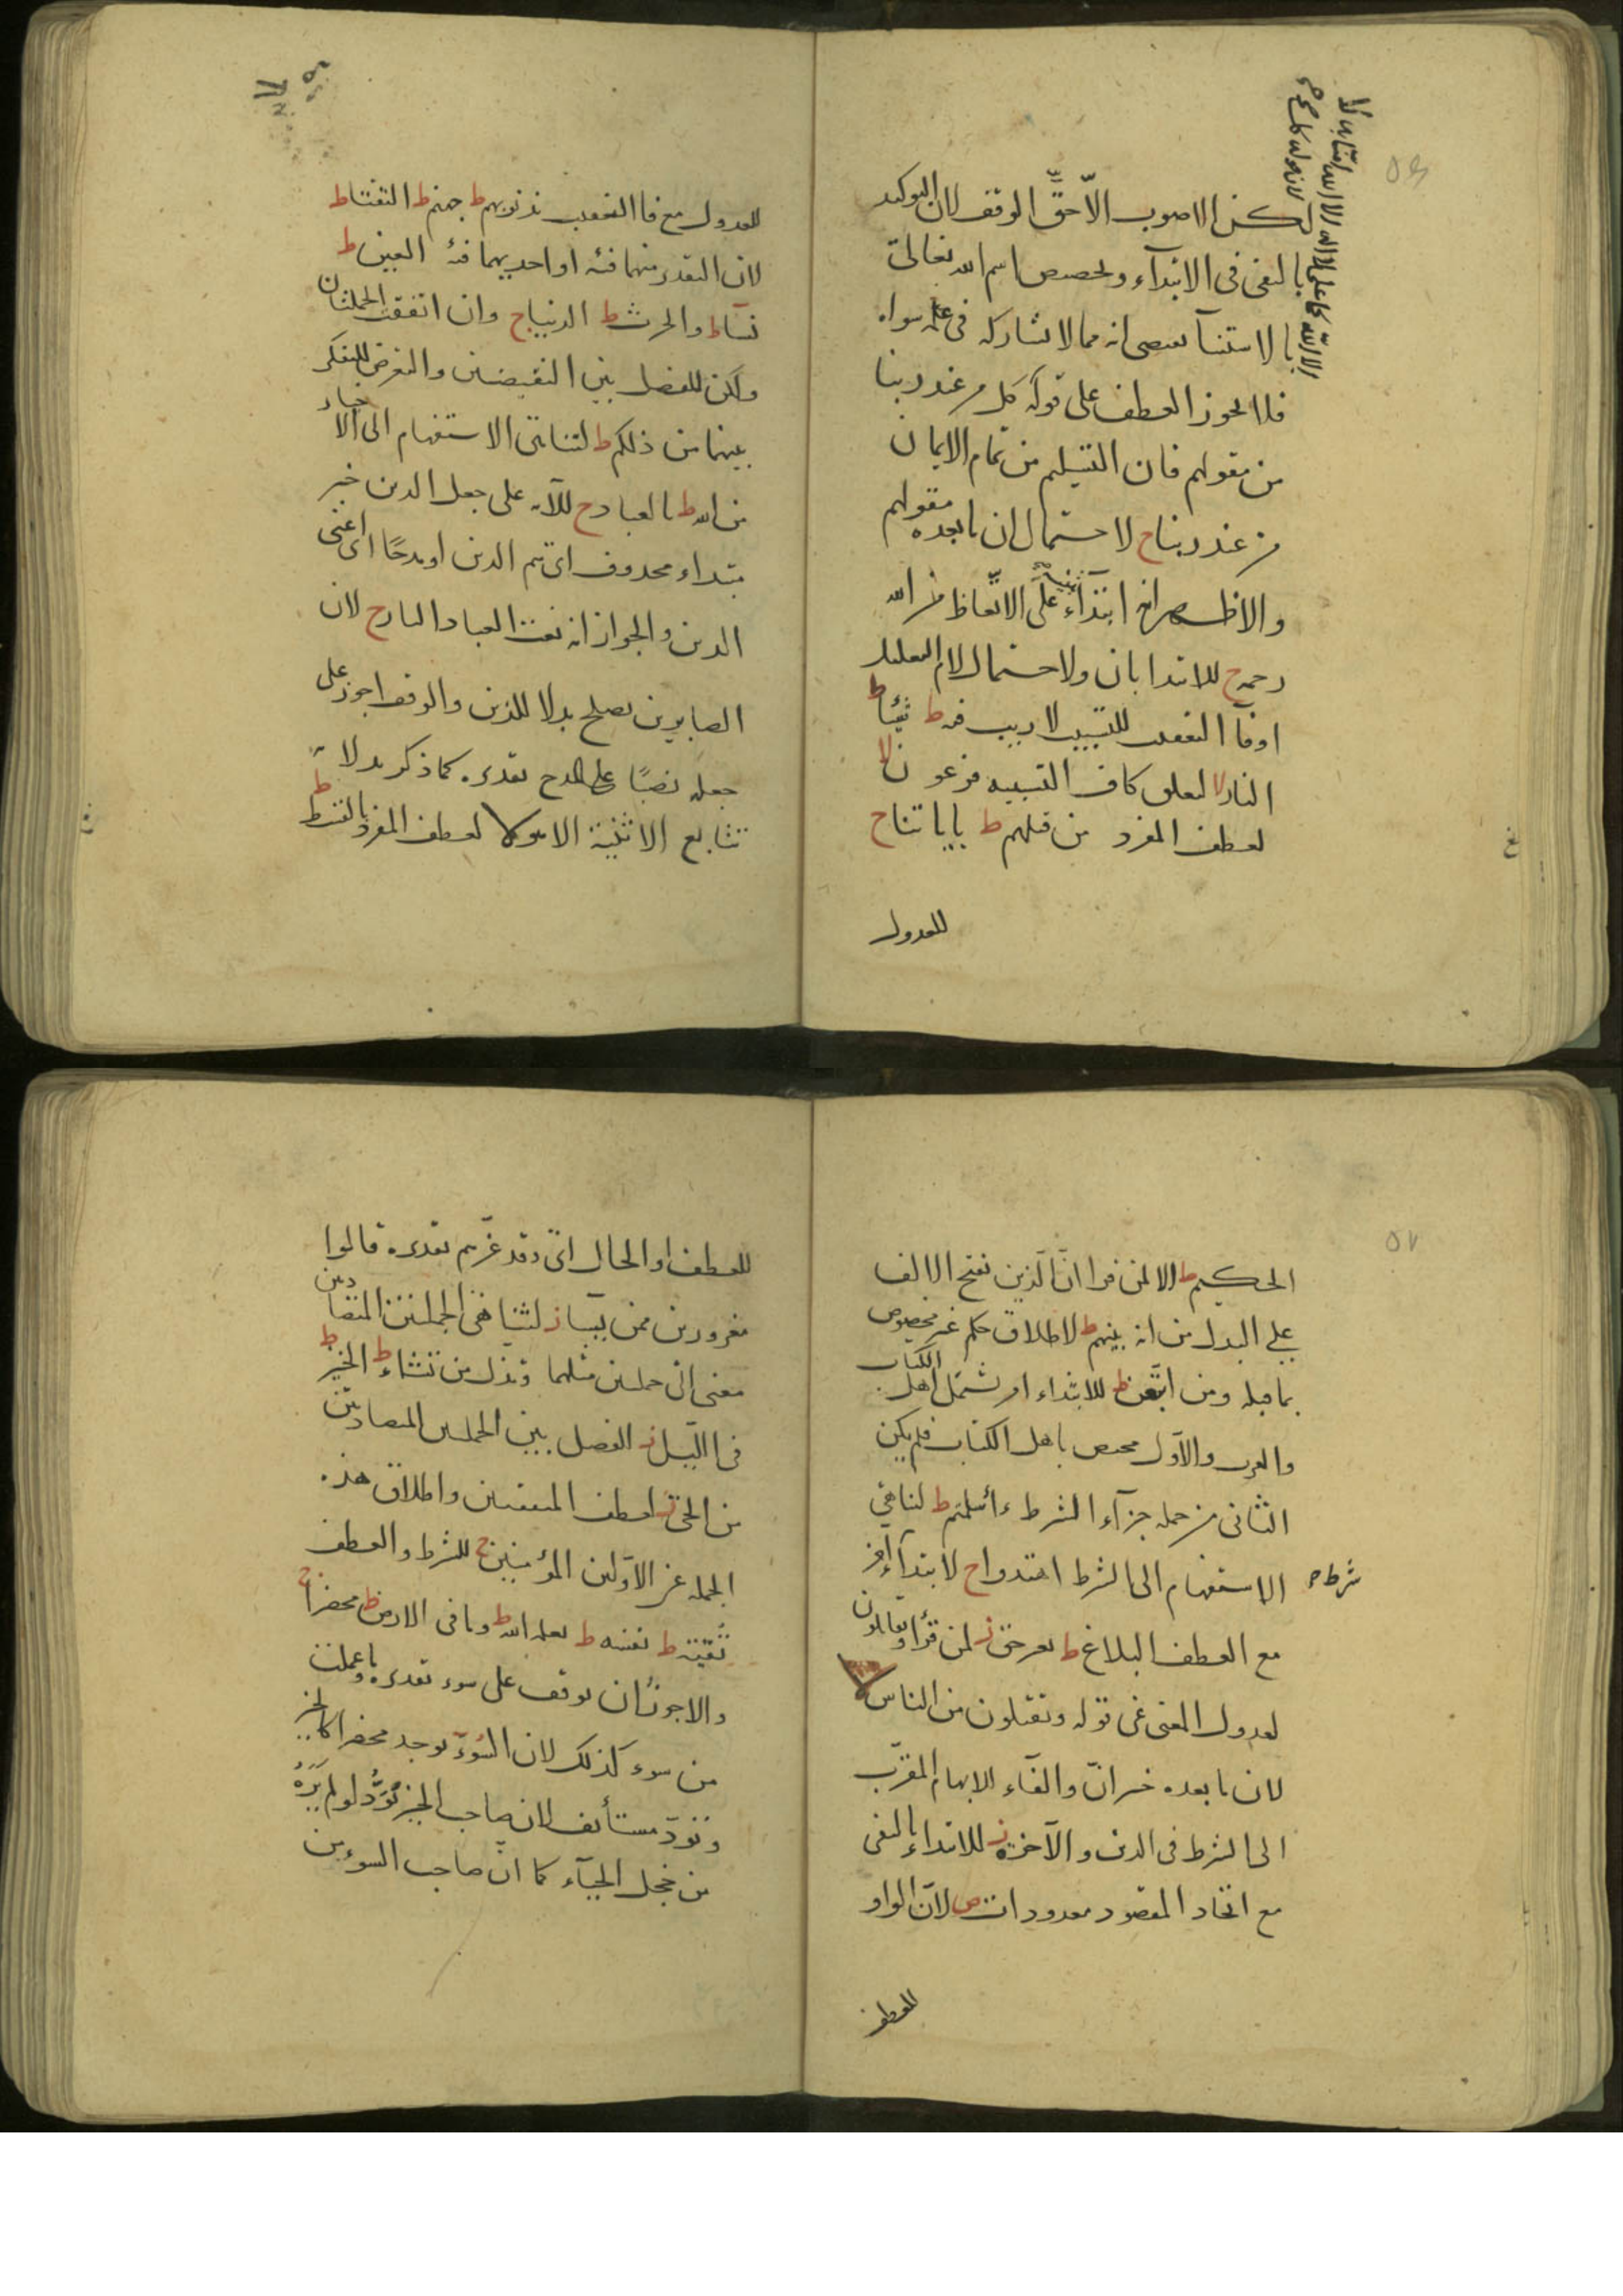 لكن الاصوب الاحقّ الوقف لان التوكيد
بالنفى فى الابتدآء وتخصيص اسم الله تعالى
بالاستثنآ يقتضى انه مما لا يشاركه فى علمه سواه
فلا يجوز العطف على قوله كل من عند ربنا
من مقولهم فان التسليم من تمام الايمان
من عند ربناج لاحتمال ان ما بعده مقولهم
والاظهر انه ابتدآء على الاتّعاظ من الله
رحمةج للابتدا بان ولاحتمال لام التعليل
اوفآ التعقيب للتسبيب لا ريب فيهط شيئاط
النارلا لتعلق كاف التشبيه فرعونلا
لعطف المفرد من قبلهمط باياتناج
للعدول
للعدول مع فا التعقيب بذنوبهمط جهنمط التقتاط
لان التقدير منهما فئة او احديهما فئة العينط
نسآءط والحرثط الدنياج وان اتفقت الجملتان
ولكن للفصل بين النقيضين والتعرض للتفكر
بينهما من ذلكمط لتناهى الاستفهام الى الاخبار
من اللهط بالعبادج للآية على جعل الذين خبر
مبتداء محذوف اى هم الذين او مدحًا اى اعنى
الذين والجواز انه نعت العباد النارج لان
الصابرين يصلح بدلا للذين والوقف اجوز على
جعله نصبًا على المدح بتقديره كما ذكر بدلالة
تتابع الاثنية الا هولا لعطف المفرد بالقسطط
٥٧
الحكيمط الا لمن قرا انّ الّذين بفتح الالف
على البدل من انه بينهمط لاطلاق حكم غير مخصوص
بما قبله ومن اتّبعنط للابتداء امر يشتمل اهل الكتاب
والعرب والاوّل مختص باهل الكتاب فلم يكن
الثانى من جملة جزآء الشرط ءاسلمتمط لتناهى
الاستفهام الى الشرط اهتدواج لابتدآء اخر
شرط
مع العطف البلاغط بغير حقز لمن قرا ويقاتلون
لعدول المعنى عن قوله ويقتلون من الناسلا
لان ما بعده خبر انّ والفآء لابهام المقرّب
الى الشرط فى الدنيا والآخرةز للابتداء بالنفى
مع اتحاد المقصود معدوداتص لانّ الواو
للعطف
للعطف او الحال اى وقد غرّهم بتقديره قالوا
مغرورين ممن يشاءز لتناهى الجملتين المتضادين
معنى الى جملتين مثلهما وتذل من تشاءط الخيرط
فى الليلز لفصل بين الجملتين المتضادتين
من الحىّز لعطف المتفقتين واطلاق هذه
الجملة عن الاوّلين المؤمنينج للشرط والعطف
تُقيةط نفسهط يعلمه اللهط وما فى الارضط محضراج
والاجود ان يوقف على سوء تقديره وما عملت
من سوء كذلك لان السّوءَ يوجد محضرا كالخير
وتودّ مستأنف لان صاحب الخير يَوَدُّ لو لم يَرَهُ
من خجل الحيآء كما انّ صاحب السوء من